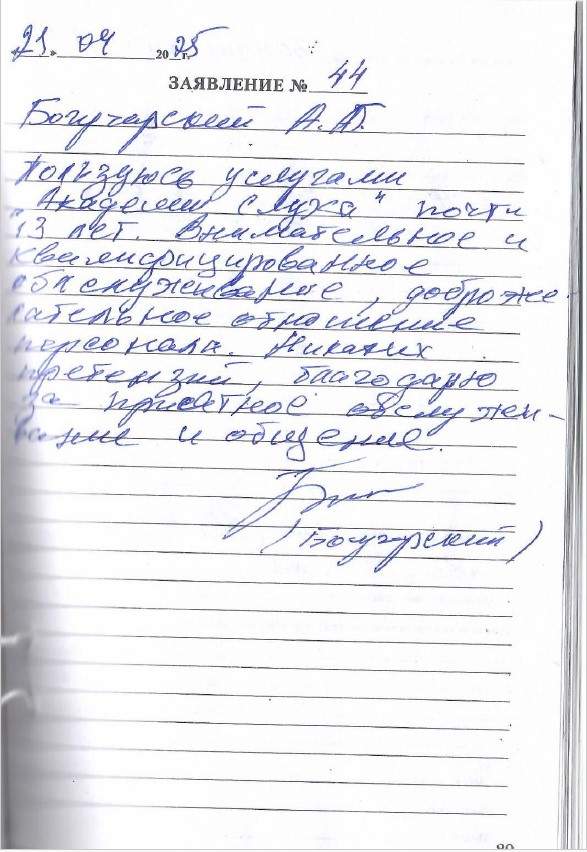 «21» 04 2025 г.
ЗАЯВЛЕНИЕ № 44
Богучарский А.
Пользуюсь услугами
"Академии слуха" почти
13 лет. Внимательное и
квалифицированное
обслуживание, доброже-
лательное отношение
персонала. Никаких
претензий, благодарю
за приятное обслужи-
вание и общение.
(Богучарский)